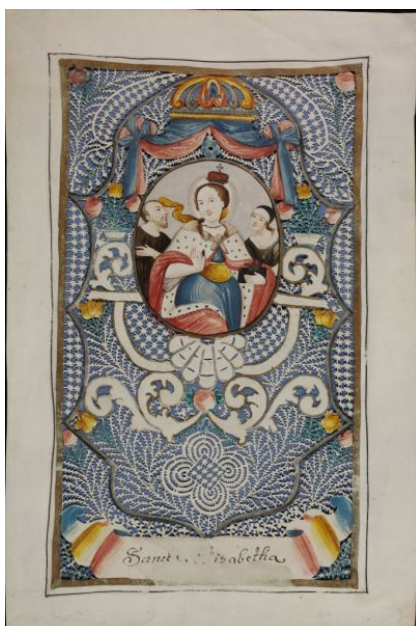 Sancta Elisabetha